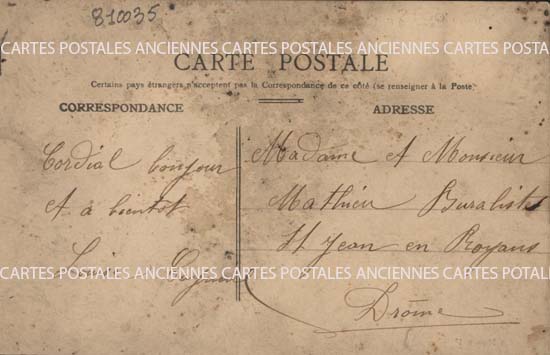 810035
CARTES POSTALES ANCIENNES CARTES POSTALES ANCIENNES CARTES POTALES
CARTE POSTALE
Certains pays étrangers n'acceptent pas la Correspondance de ce côté (se renseigner à la Poste
CORRESPONDANCE
Cordial bonjour
et à bientot
ADRESSE
Madame et Monsieur
Mathieu Buraliste
St Jean en Royans
Drôme
CARTES POSTALES ANCIENNES CARTES POSTALES ANCIENNES CARTES POTALES